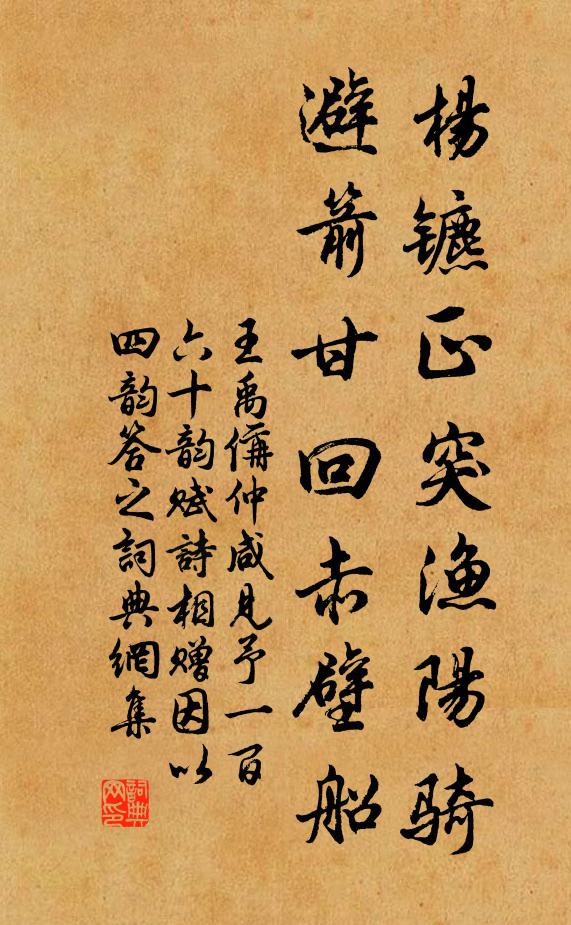 楊鑣正突渔陽骑
避箭甘回赤壁船
王禹偁仲咸见予一百
六十韵赋詩相赠因以
四韵答之詞典網集
詞典
网印